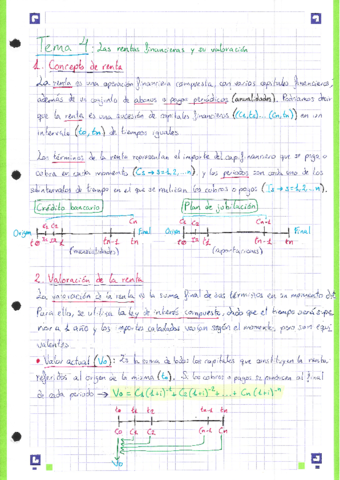 Tema 4: Las rentas financieras y su valoración
1. Concepto de renta
La renta es una operación financiera compuesta, con varios capitales financieros,
además de un conjunto de abonos o pagos periódicos (anualidades). Podríamos decir
que la renta es una sucesión de capitales financieros ((C1,t1)... (Cn,tn)) en un
intervalo (t0, tn) de tiempos iguales.
Los términos de la renta representan el importe del cap. financiero que se paga o
cobra en cada momento (Cs → s=1,2,...n). y los periodos son cada uno de los
subintervalos de tiempo en el que se realizan los cobros o pagos (Is → s=1,2...n).
Crédito bancario
Plan de jubilación
C1 C2 Cn
Origen Final
t0 I1 I2 tn-1 tn
(mensualidades)
C1 C2 Cn-1
Origen Final
t0 I1 I2 tn-1 tn
(aportaciones)
2. Valoración de la renta
La valoración de la renta es la suma final de sus términos en su momento
Para ello, se utiliza la ley de interés compuesto, dado que el tiempo será supe-
rior a 1 año y los importes calculados varían según el momento, pero son equi
valentes.
• Valor actual (V0): Es la suma de todos los capitales que constituyen la renta
referidos al origen de la misma (t0). Si los cobros o pagos se producen al final
de cada periodo → V0 = C1(1+i)⁻¹ + C2(1+i)⁻² + ... + Cn(1+i)⁻ⁿ
t0 t1 t2 tn-1 tn
C0 C1 C2 Cn-1 Cn
V0